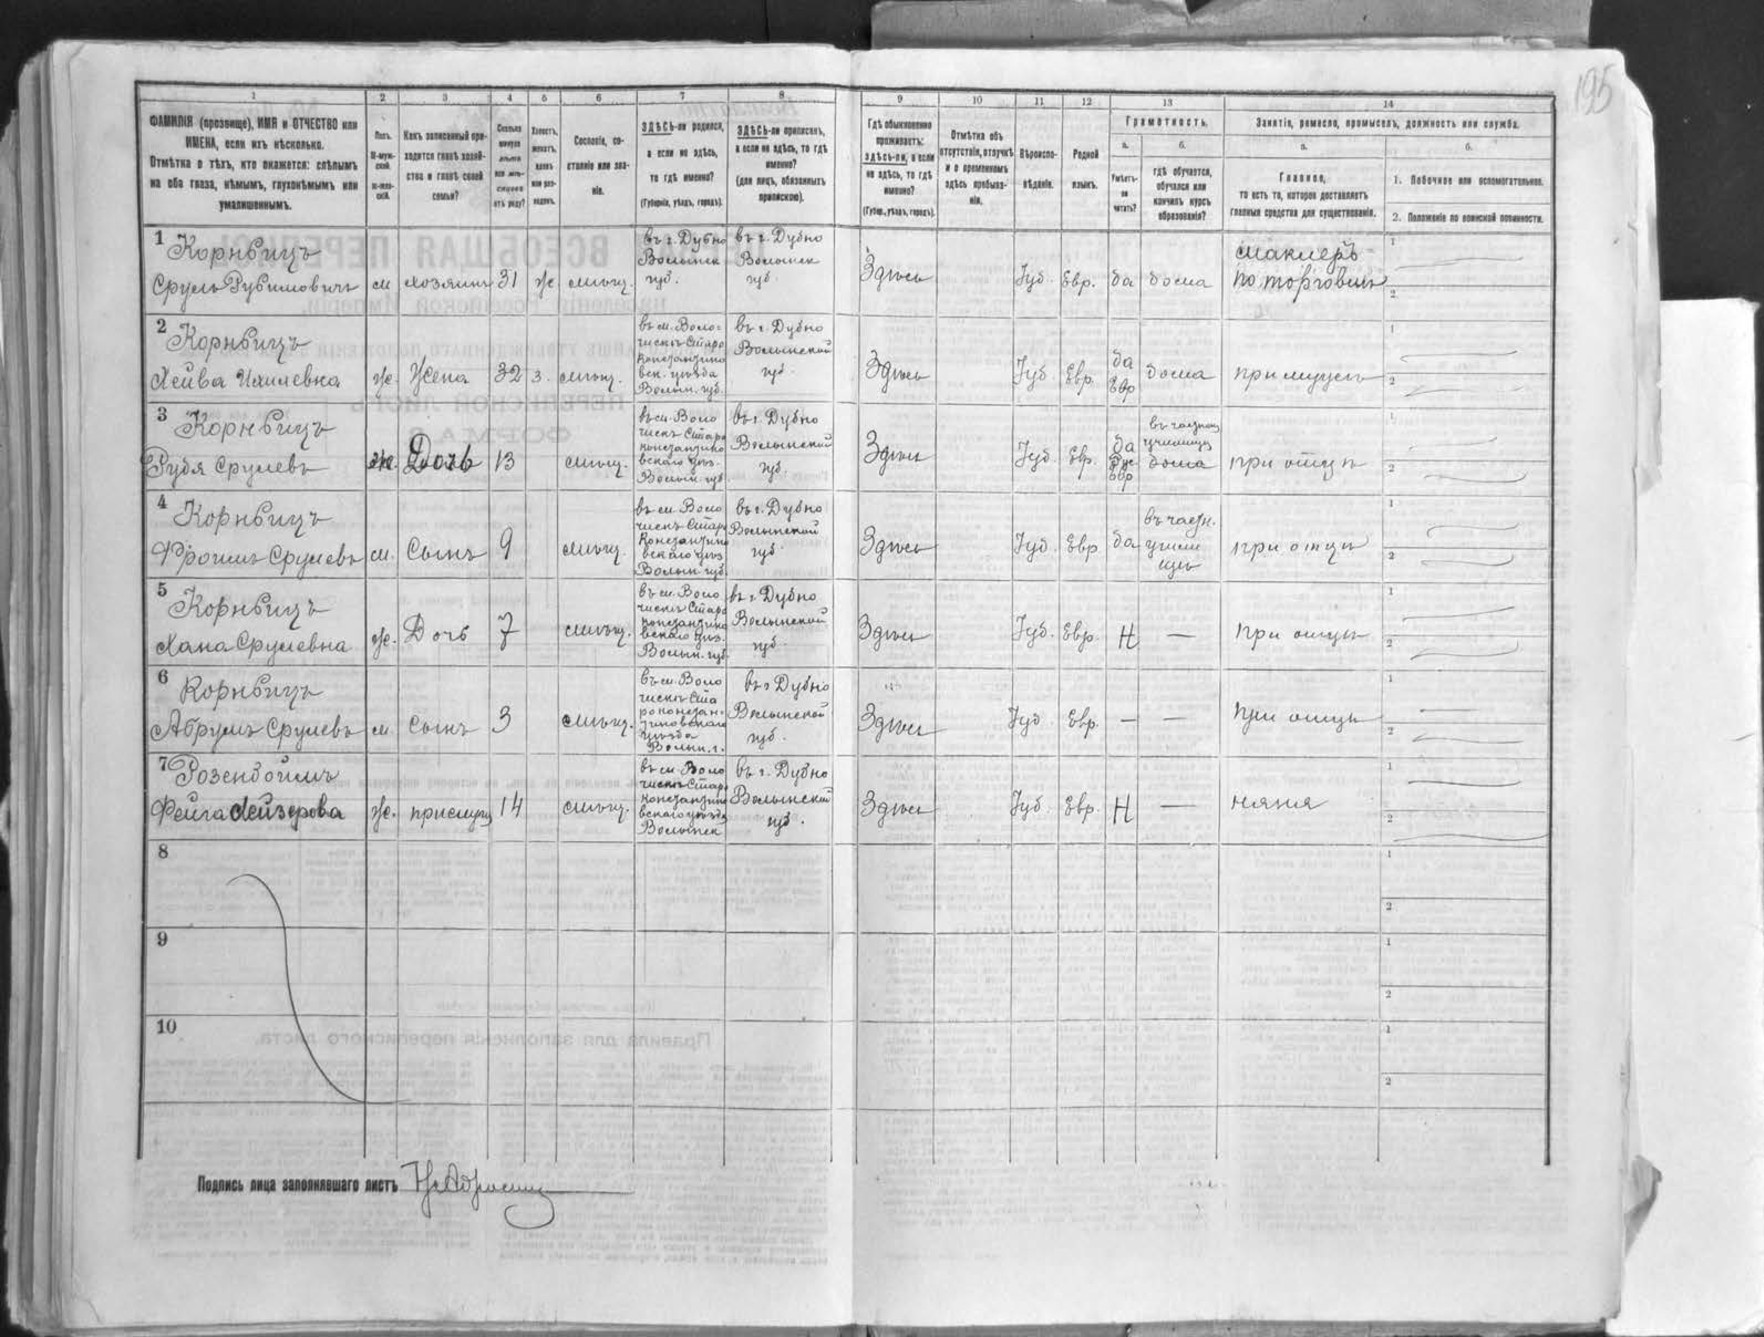 195
1 2 3 4 5 6 7 8 9 10 11 12 13 14
ФАМИЛІЯ (прозвище), ИМЯ и ОТЧЕСТВО или
ИМЕНА, если ихъ нѣсколько.
Отмѣтка о тѣхъ, кто окажется: слѣпымъ
на оба глаза, нѣмымъ, глухонѣмымъ или
умалишеннымъ.
Полъ.
М-муж-
ской.
ж-жен-
скій.
Какъ записанный при-
ходится главѣ хозяй-
ства и главѣ своей
семьи?
Сколько
минуло
лѣтъ
или мѣ-
сяцевъ
отъ роду?
Холостъ,
женатъ,
вдовъ
или раз-
веденъ.
Сословіе, со-
стояніе или зва-
ніе.
ЗДѢСЬ-ли родился,
а если не здѣсь,
то гдѣ именно?
(Губернія, уѣздъ, городъ).
ЗДѢСЬ-ли приписанъ,
а если не здѣсь, то гдѣ
именно?
(для лицъ, обязанныхъ
припискою).
Гдѣ обыкновенно
проживаетъ:
здѣсь-ли, а если
не здѣсь, то гдѣ
именно?
(Губер., уѣздъ, городъ).
Отмѣтка объ
отсутствіи, отлучкѣ
и о временномъ
здѣсь пребыва-
ніи.
Вѣроиспо-
вѣданіе.
Родной
языкъ.
Грамотность.
а.
Умѣетъ-
ли
читать?
б.
гдѣ обучается,
обучался или
кончилъ курсъ
образованія?
Занятіе, ремесло, промыселъ, должность или служба.
а.
Главное,
то есть то, которое доставляетъ
главныя средства для существованія.
б.
1. Побочное или вспомогательное.
2. Положеніе по воинской повинности.
1 Корнвицъ
Сруль Рувимовичъ м хозяинъ 31 ж мѣщ.
въ г. Дубно
Волынск
губ.
въ г. Дубно
Волынск
губ.
Здѣсь Іуд. Евр. да дома
маклеръ
по торговлѣ
1
2
2 Корнвицъ
Хейва Ихилевна ж. Жена 32 з. мѣщ.
въ м. Воло-
чискъ Старо
константино
вск. уѣзда
Волын. губ.
въ г. Дубно
Волынской
губ.
Здѣсь Іуд. Евр.
да
Евр
дома при мужѣ
1
2
3 Корнвицъ
Рубя Срулевъ ж. Дочь 13 мѣщ.
въ м. Воло
чискъ Старо
константино
вскаго уѣз.
Волын. губ
въ г. Дубно
Волынской
губ.
Здѣсь Іуд. Евр.
да
Рус
Евр
въ частном
училищѣ
дома
при отцѣ
1
2
4 Корнвицъ
Фроимъ Срулевъ м. Сынъ 9 мѣщ.
въ м. Воло
чискъ Старо
константино
вскаго уѣз
Волын. губ.
въ г. Дубно
Волынской
губ
Здѣсь Іуд. Евр да
въ частн.
учили
щѣ
при отцѣ
1
2
5 Корнвицъ
Хана Срулевна ж. Дочь 7 мѣщ.
въ м. Воло
чискъ Старо
константино
вскаго уѣз.
Волын. губ.
въ г. Дубно
Волынской
губ.
Здѣсь Іуд. Евр. Н — при отцѣ
1
2
6 Корнвицъ
Абрумъ Срулевъ м. сынъ 3 мѣщ.
въ м. Воло
чискъ Ста
роконстан-
тиновскаго
уѣзда
Волын. г.
въ г Дубно
Волынской
губ.
Здѣсь Іуд. Евр. — — при отцѣ
1
2
7 Розенбоймъ
Фейга Лейзерова ж. прислуга 14 мѣщ.
въ м. Воло
чискъ Старо
константино
вскаго уѣзда
Волынск
въ г. Дубно
Волынской
губ.
Здѣсь Іуд. Евр. Н — няня
1
2
8
1
2
9
1
2
10
1
2
Подпись лица заполнявшаго листъ